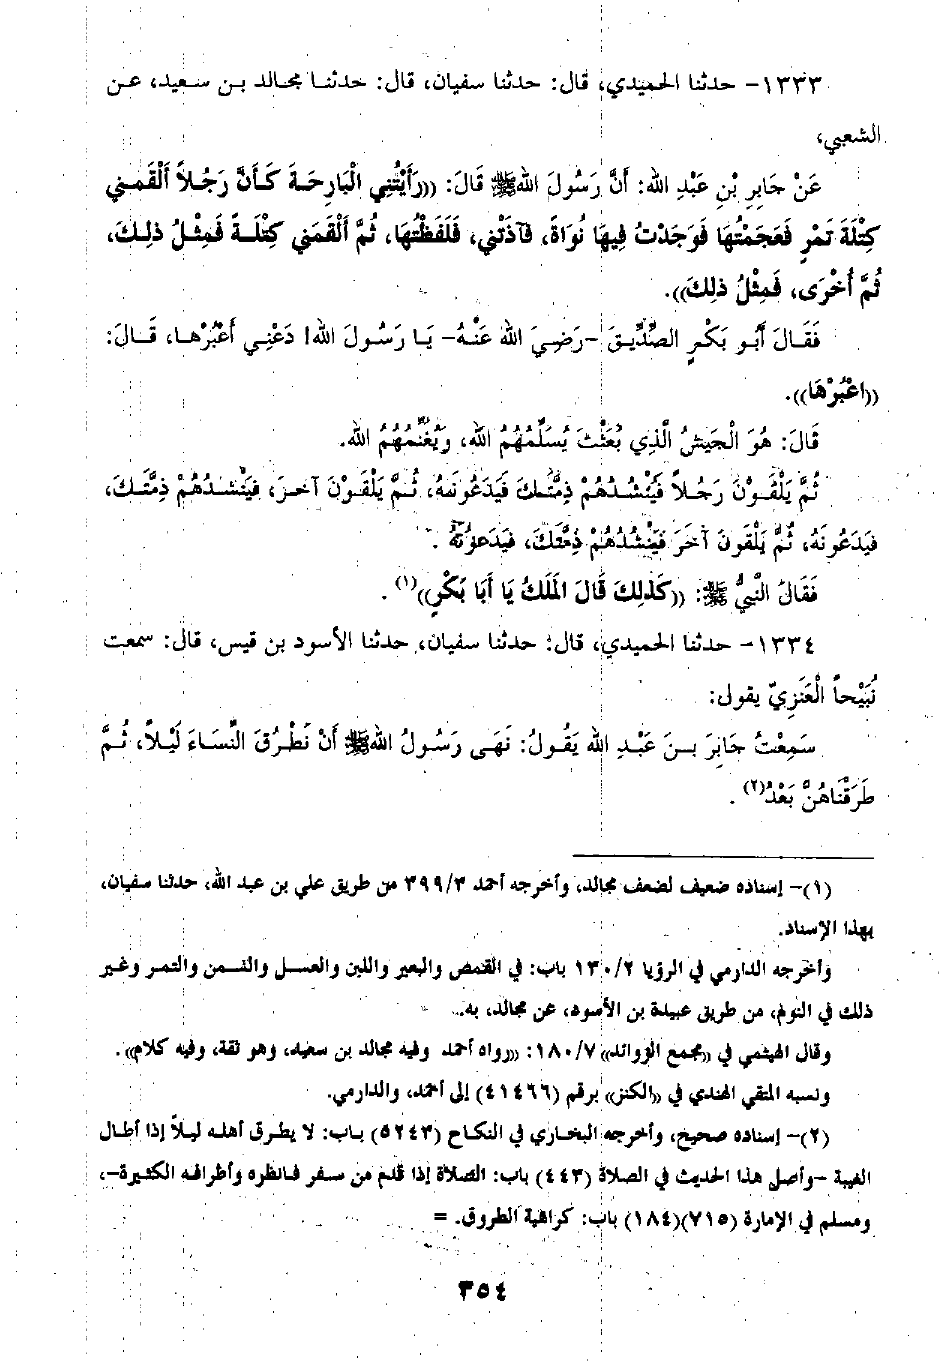 ١٣٣٣- حدثنا الحميدي، قال: حدثنا سفيان، قال: حدثنا مجالد بن سعيد، عن
الشعبي،
عَنْ جَابِرِ بْنِ عَبْدِ اللهِ: أَنَّ رَسُولَ اللهِ ﷺ قَالَ: ((رَأَيْتُنِي الْبَارِحَةَ كَأَنَّ رَجُلاً أَلْقَمَنِي
كِتْلَةَ تَمْرٍ فَعَجَمْتُهَا فَوَجَدْتُ فِيهَا نُوَاةً، فَآذَتْنِي، فَلَفَظْتُهَا، ثُمَّ أَلْقَمَنِي كِتْلَةً فَمِثْلُ ذلِكَ،
ثُمَّ أُخْرَى، فَمِثْلُ ذلِكَ)).
فَقَالَ أَبُو بَكْرٍ الصِّدِّيقَ -رَضِيَ اللهُ عَنْهُ- يَا رَسُولَ اللهِ! دَعْنِي أَعْبُرْهَا، قَالَ:
((اعْبُرْهَا)).
قَالَ: هُوَ الْجَيْشُ الَّذِي بُعَثْتَ يُسَلِّمُهُمُ اللهُ، وَيُغَنِّمُهُمُ اللهُ.
ثُمَّ يَلْقَوْنَ رَجُلاً فَيُنْشُدُهُمْ ذِمَّتَكَ فَيَدَعُونَهُ، ثُمَّ يَلْقَوْنَ آخرَ، فَيَنْشُدُهُمْ ذِمَّتَكَ،
فَيَدَعُونَهُ، ثُمَّ يَلْقَونَ آخَرَ فَيَنْشُدُهُمْ ذِمَّتَكَ، فَيَدَعُونَهُ.
فَقَالَ النَّبِيُّ ﷺ: ((كَذلِكَ قَالَ الْمَلَكُ يَا أَبَا بَكْرٍ))(١).
١٣٣٤- حدثنا الحميدي، قال: حدثنا سفيان، حدثنا الأسود بن قيس، قال: سمعت
نُبَيْحاً الْعَنَزِيّ يقول:
سَمِعْتُ جَابِرَ بنَ عَبْدِ اللهِ يَقُولُ: نَهَى رَسُولُ اللهِ ﷺ أَنْ نَطْرُقَ النِّسَاءَ لَيْلاً، ثُمَّ
طَرَقْنَاهُنَّ بَعْدُ(٢).
(١)- إسناده ضعيف لضعف مجالد، وأخرجه أحمد ٣٩٩/٣ من طريق علي بن عبد الله، حدثنا سفيان،
بهذا الإسناد.
وأخرجه الدارمي في الرؤيا ١٣٠/٢ باب: في القمص والبعير واللبن والعسل والسمن والتمر وغير
ذلك في النوم، من طريق عبيدة بن الأسود، عن مجالد، به.
وقال الهيثمي في «مجمع الزوائد» ١٨٠/٧: «رواه أحمد وفيه مجالد بن سعيد، وهو ثقة، وفيه كلام».
ونسبه المتقي الهندي في «الكنز» برقم (٤١٤٦٦) إلى أحمد، والدارمي.
(٢)- إسناده صحيح، وأخرجه البخاري في النكاح (٥٢٤٣) باب: لا يطرق أهله ليلاً إذا أطال
الغيبة -وأصل هذا الحديث في الصلاة (٤٤٣) باب: الصلاة إذا قدم من سفر فانظره وأطرافه الكثيرة-،
ومسلم في الإمارة (٧١٥)(١٨٤) باب: كراهية الطروق. =
٣٥٤